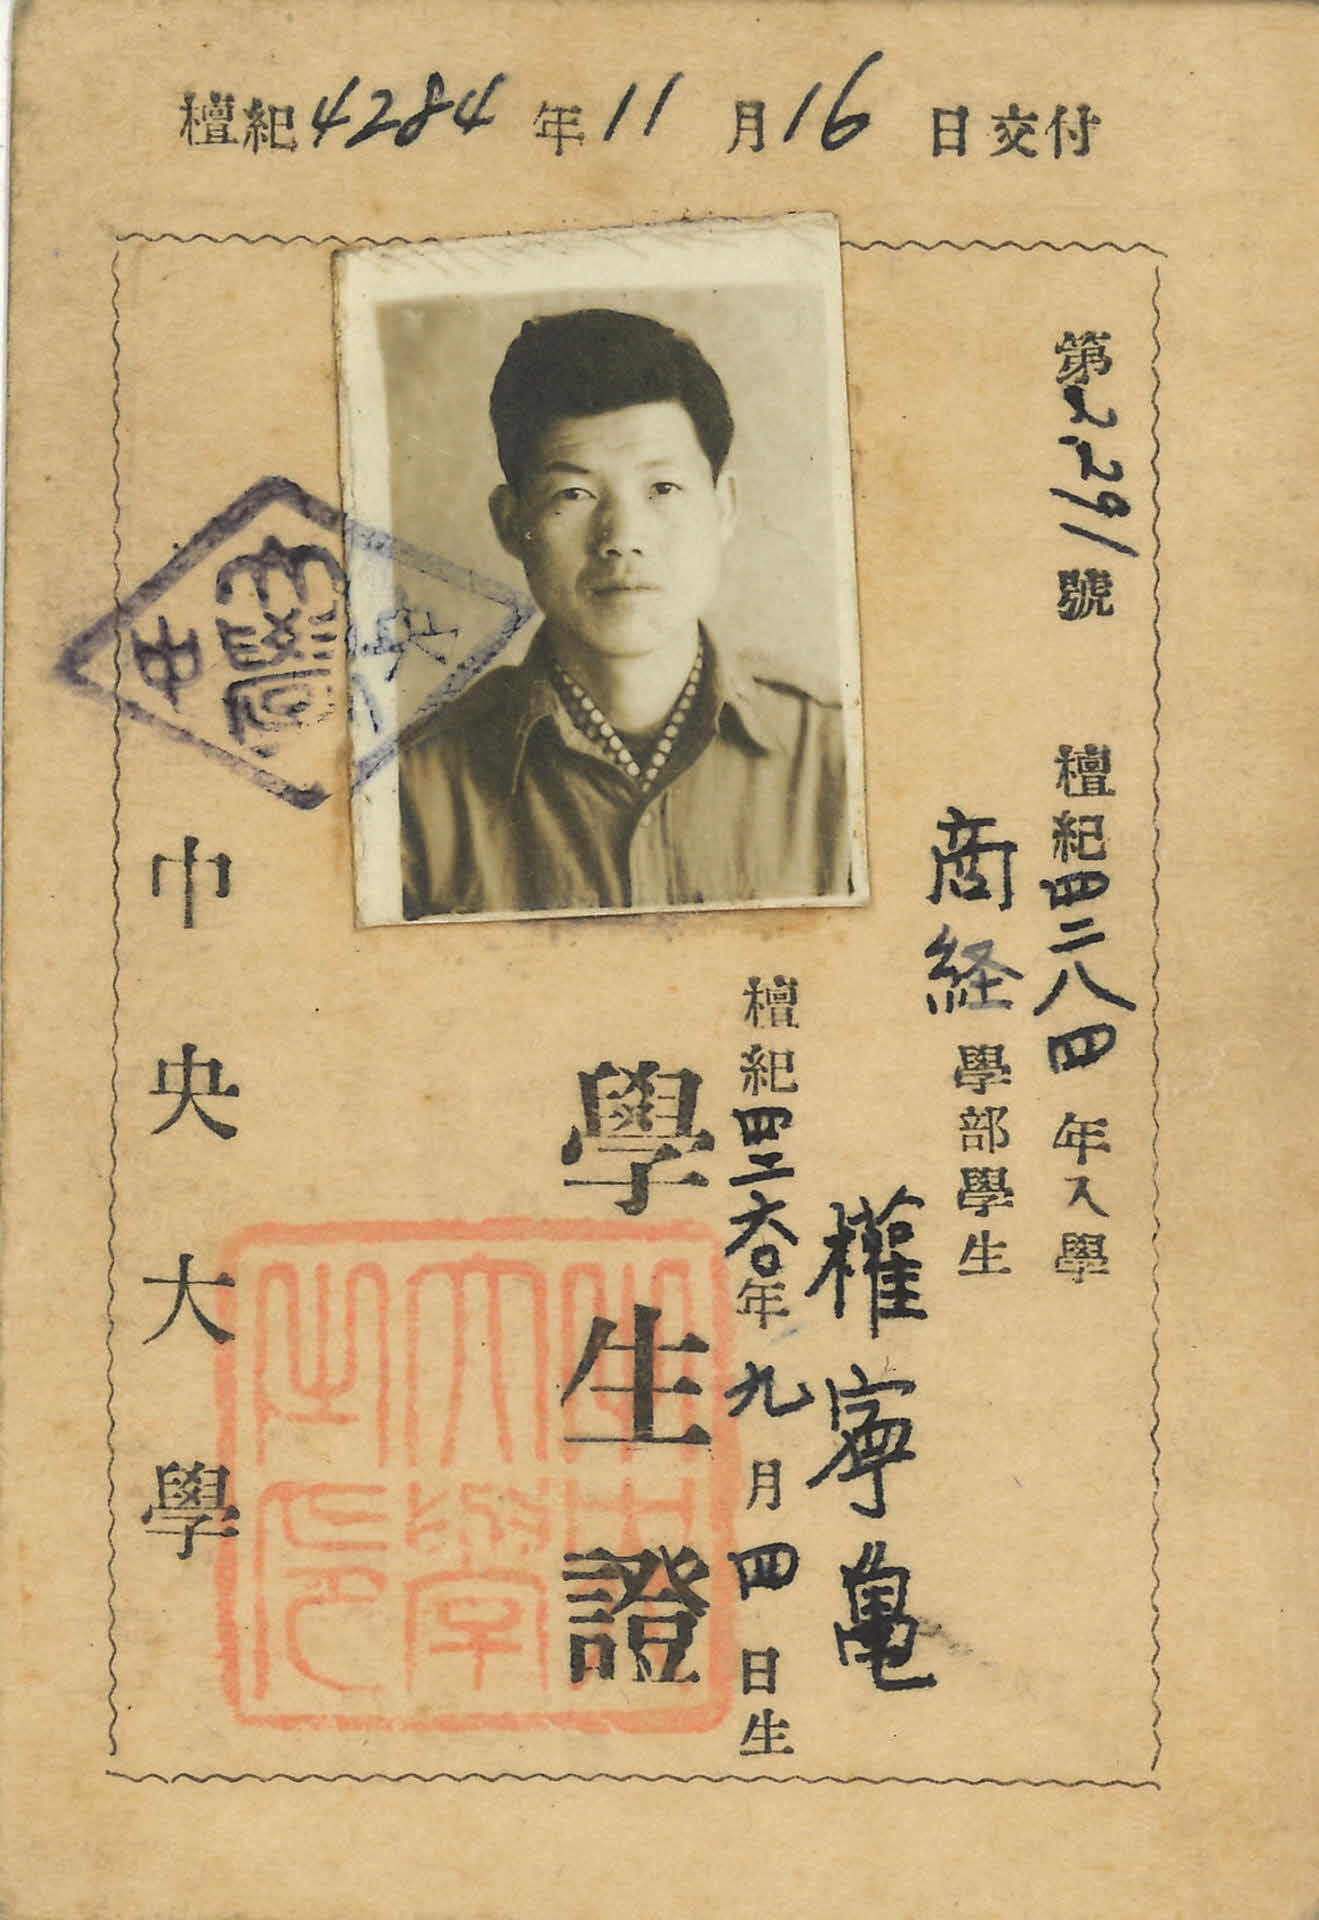 檀紀4284年11月16日交付
第2,291號
檀紀四二八四年入學
商経學部學生
權寧亀
檀紀四二六〇年九月四日生
學生證
中央大學
中央
大學